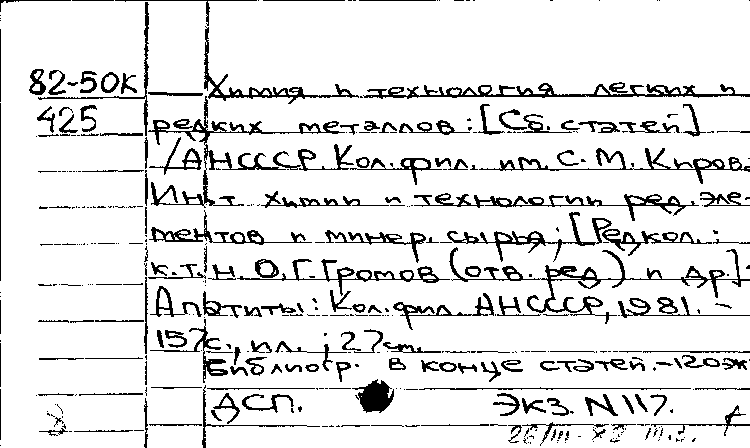 82-50К Химия и технология легких и
425 редких металлов: [Сб. статей]
/АНСССР. Кол. фил. им. С. М. Киров.
Ин-т химии и технологии ред. эле-
ментов и минер. сырья; [Редкол.:
к.т.н. О.Г. Громов (отв. ред) и др.]-
Апатиты: Кол. фил. АНСССР, 1981. -
157с., ил.; 27см.
Библиогр. в конце статей. -120эк
ДСП. ЭКЗ. N117.
26/III-82